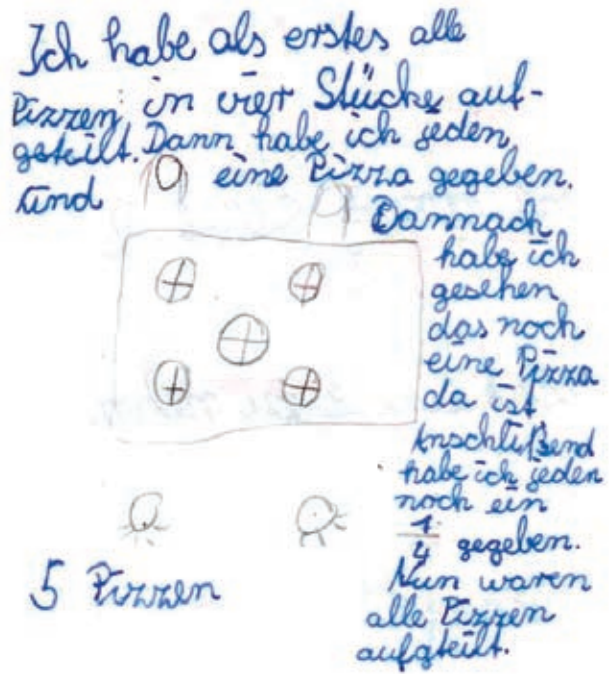 Ich habe als erstes alle
Pizzen in vier Stücke auf-
geteilt. Dann habe ich jeden
und eine Pizza gegeben.
Dannach
habe ich
gesehen
das noch
eine Pizza
da ist
Anschlißend
habe ich jeden
noch ein
1/4 gegeben.
Nun waren
alle Pizzen
aufgteilt.
5 Pizzen